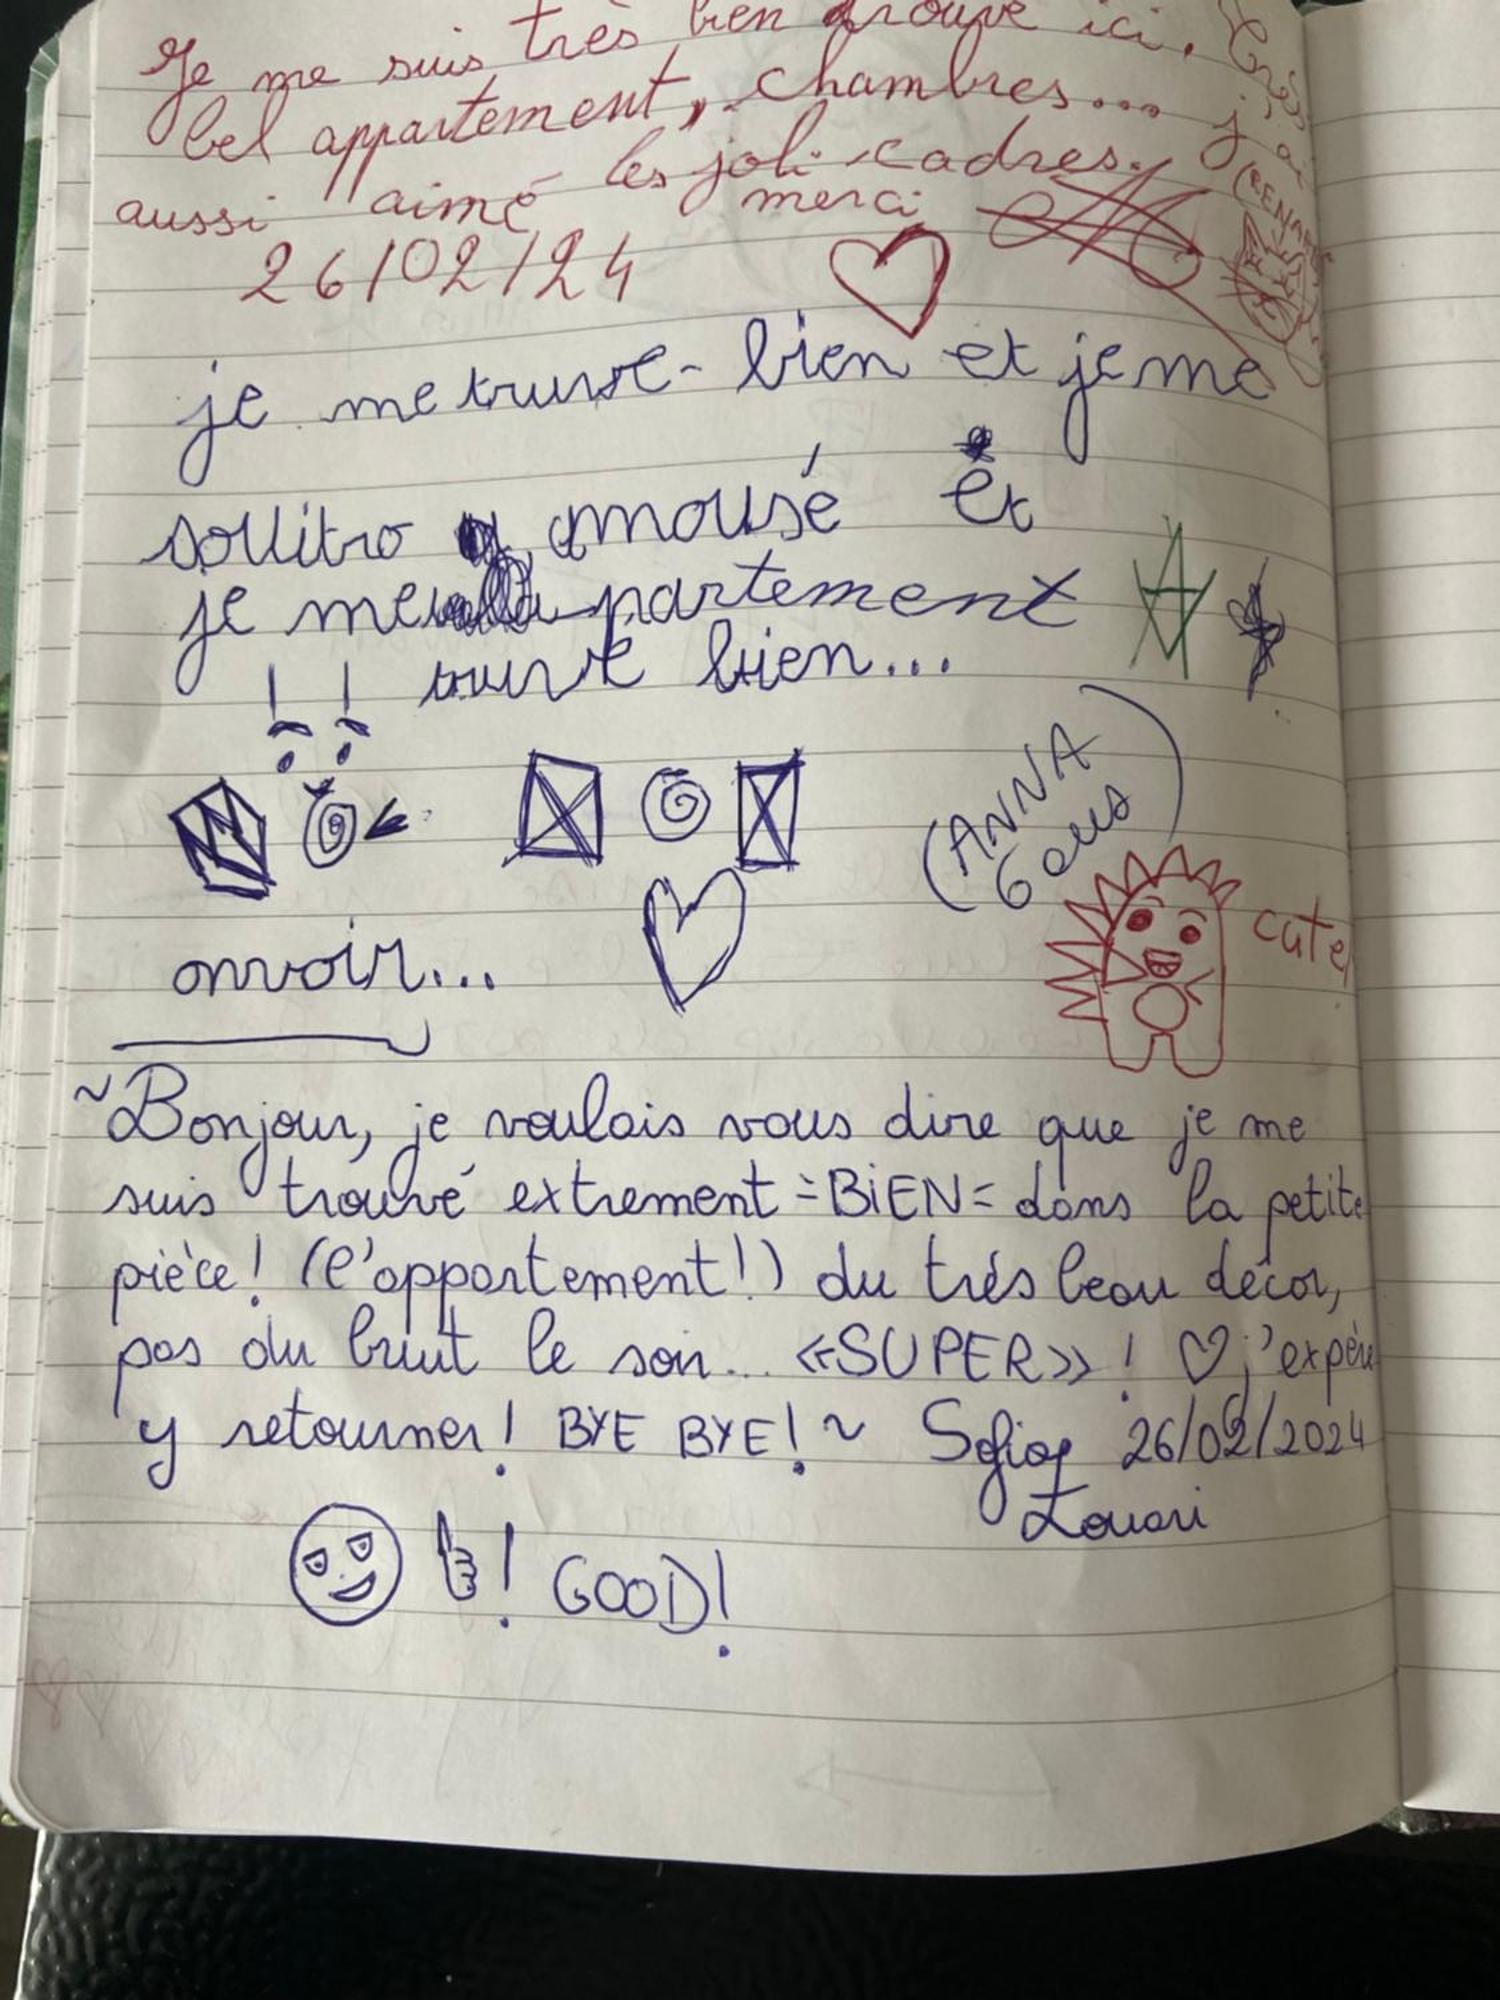 Je me suis très bien trouvé ici. Très
bel appartement, chambres... j'ai
aussi aimé les joli cadres.
merci
26/02/24
(RENARD
je me truve- bien et je me
sollitro amousé et
je me partement
truve bien...
(ANNA
6 ans)
cute
onvoir...
~Bonjour, je voulais vous dire que je me
suis trouvé extrement =BiEN= dans la petite
pièce! (l'appartement!) du trés beau décor,
pas du bruit le son... «SUPER»! ♡ j'expère
y retourner! BYE BYE! ~ Sofia 26/02/2024
Louari
! GOOD!